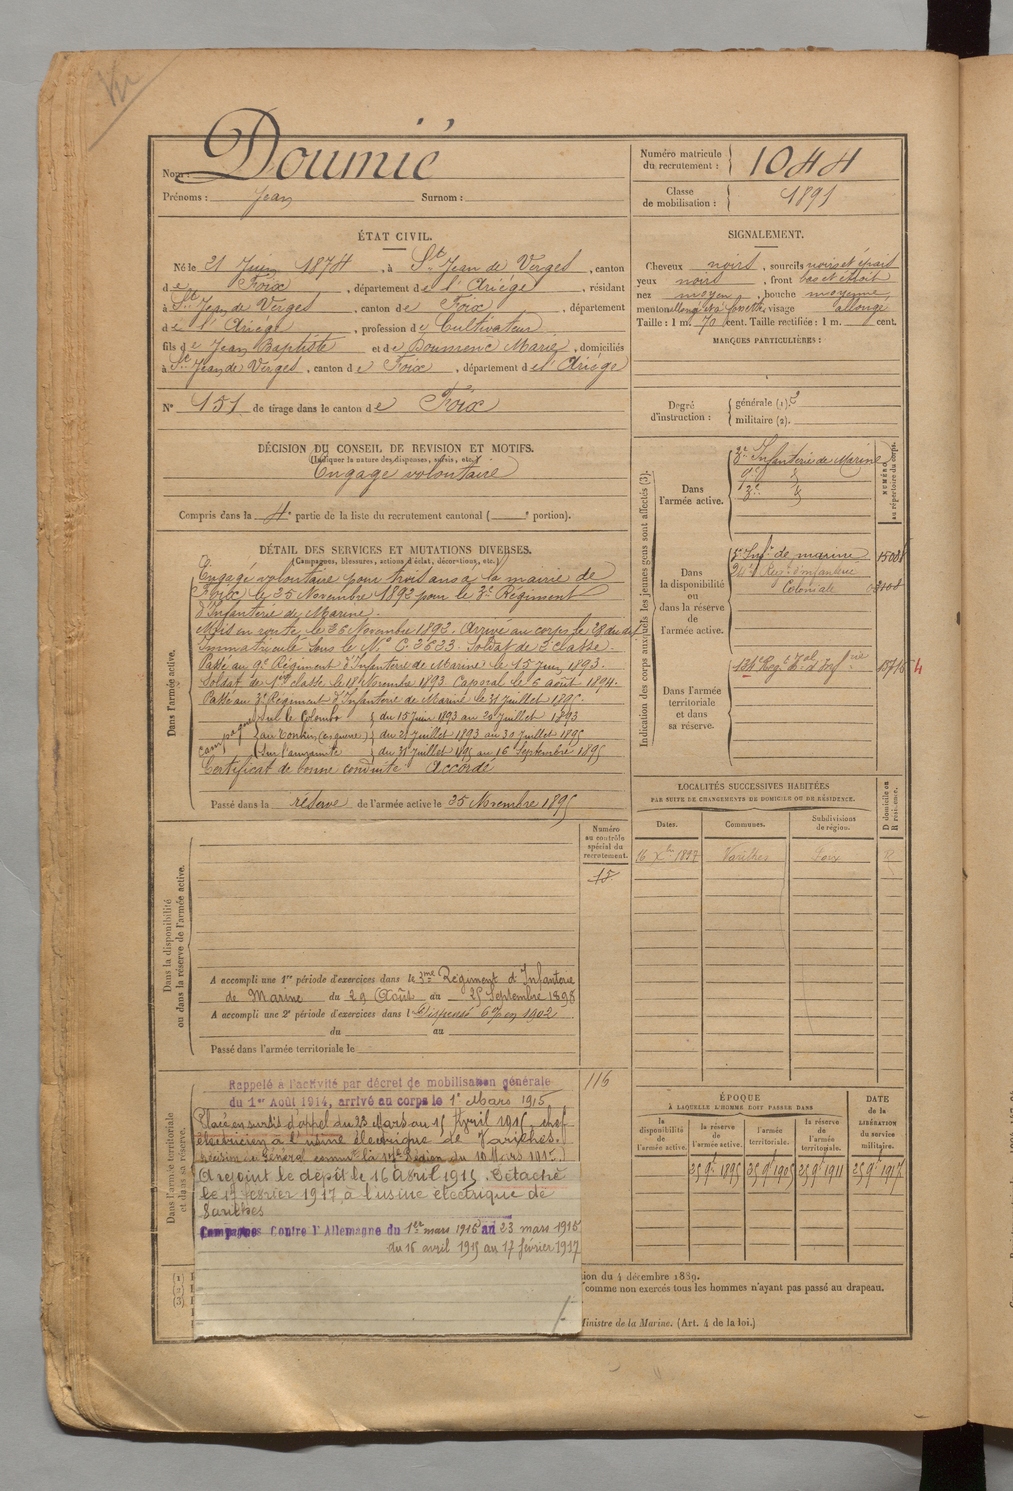 Vu
Nom : Doumié
Prénoms : Jean Surnom :
Numéro matricule du recrutement : 1044
Classe de mobilisation : 1891
ÉTAT CIVIL.
Né le 21 Juin 1874, à St Jean de Verges, canton
de Foix, département de l'Ariège, résidant
à St Jean de Verges, canton de Foix, département
de l'Ariège, profession de Cultivateur
fils de Jean Baptiste et de Doumenc Marie, domiciliés
à St Jean de Verges, canton de Foix, département de l'Ariège
N° 151 de tirage dans le canton de Foix
SIGNALEMENT.
Cheveux noirs, sourcils noirs et épais
yeux noirs, front bas et étroit
nez moyen, bouche moyenne
menton allongé à fossette, visage allongé
Taille : 1 m. 70 cent. Taille rectifiée : 1 m. cent.
MARQUES PARTICULIÈRES :
Degré d'instruction : générale (1). 2
militaire (2).
DÉCISION DU CONSEIL DE REVISION ET MOTIFS.
(Indiquer la nature des dispenses, sursis, etc.)
Engagé volontaire
Compris dans la 4e partie de la liste du recrutement cantonal ( e portion).
DÉTAIL DES SERVICES ET MUTATIONS DIVERSES.
(Campagnes, blessures, actions d'éclat, décorations, etc.)
Dans l'armée active.
Engagé volontaire pour trois ans à la mairie de
Foix, le 25 Novembre 1892 pour le 3e Régiment
d'Infanterie de Marine.
Mis en route le 26 Novembre 1892. Arrivé au corps le 28 du dit
Immatriculé sous le N° C. 3633. Soldat de 2e classe.
Passé au 9e Régiment d'Infanterie de Marine le 15 Juin 1893.
Soldat de 1ère classe le 18 Novembre 1893 Caporal le 6 août 1894.
Passé au 3e Régiment d'Infanterie de Marine le 31 Juillet 1895.
Campagnes sur le Colombo du 15 Juin 1893 au 20 Juillet 1893
au Tonkin (en guerre) du 21 Juillet 1893 au 30 Juillet 1895
sur l' du 31 Juillet 1895 au 16 Septembre 1895
Certificat de bonne conduite : Accordé
Passé dans la réserve de l'armée active le 25 Novembre 1895
Indication des corps auxquels les jeunes gens sont affectés (3).
NUMÉRO au répertoire du corps.
Dans l'armée active.
3e Infanterie de Marine
9e
3e
Dans la disponibilité ou dans la réserve de l'armée active.
3e Inf. de marine 15008
Rég. d'infanterie
Coloniale
Dans l'armée territoriale et dans sa réserve.
4
LOCALITÉS SUCCESSIVES HABITÉES
PAR SUITE DE CHANGEMENTS DE DOMICILE OU DE RÉSIDENCE.
Dates. Communes. Subdivisions de région. D domicile ou R résidence.
16 Xbre 1897 Varilhes Foix R
Dans la disponibilité ou dans la réserve de l'armée active.
Numéro au contrôle spécial du recrutement.
15
A accompli une 1re période d'exercices dans le 3me Régiment d'Infanterie
de Marine du 29 Août au 25 Septembre 1898
A accompli une 2e période d'exercices dans l Dispensé en 1902
du au
Passé dans l'armée territoriale le
Dans l'armée territoriale et dans sa réserve.
116
Rappelé à l'activité par décret de mobilisation générale
du 1er Août 1914, arrivé au corps le 1er Mars 1915
Placé en sursis d'appel du 23 Mars au 15 Avril 1915, chef
électricien à l'usine électrique de Varilhes.
Décision du Général commt la 17e Région du 10 Mars 1915.
A rejoint le dépôt le 16 Avril 1915. Détaché
le 17 février 1917 à l'usine électrique de
Varilhes
Campagnes Contre l'Allemagne du 1er mars 1915 au 23 mars 1915
du 16 avril 1915 au 17 février 1917
ÉPOQUE
À LAQUELLE L'HOMME DOIT PASSER DANS
la disponibilité de l'armée active. la réserve de l'armée active. l'armée territoriale. la réserve de l'armée territoriale.
DATE de la LIBÉRATION du service militaire.
25 9bre 1895 25 9bre 1905 25 9bre 1911 25 9bre 1917
(1)
(2)
(3)
ion du 4 décembre 1889.
comme non exercés tous les hommes n'ayant pas passé au drapeau.
Ministre de la Marine. (Art. 4 de la loi.)